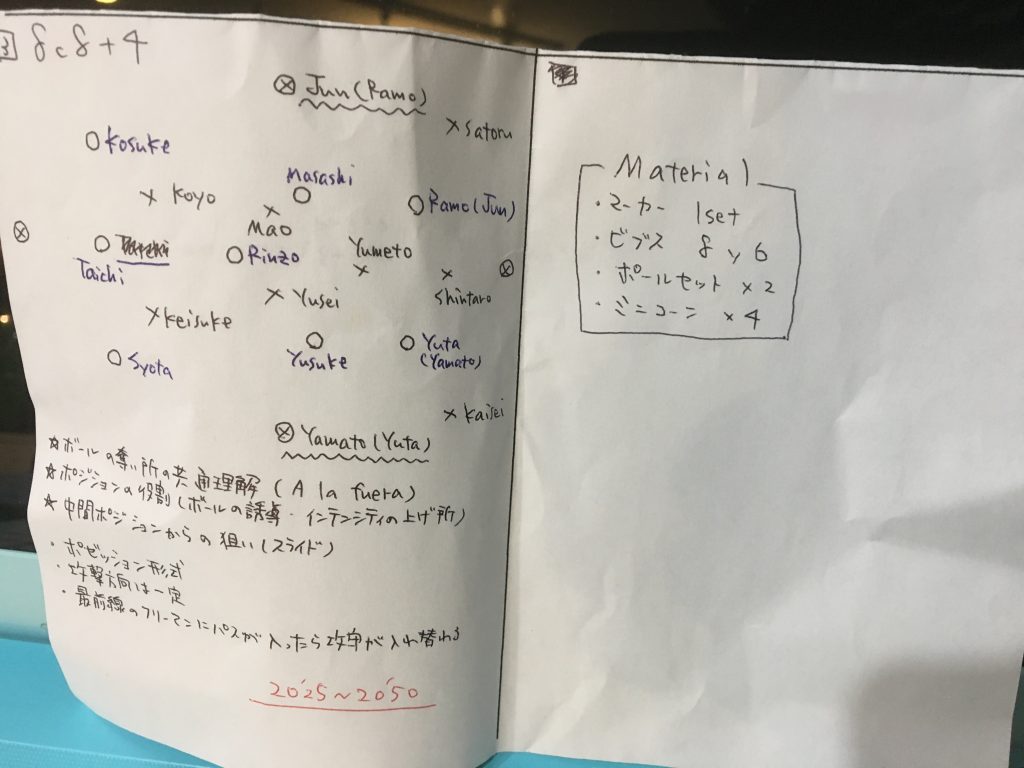 3 8c8+4
⊗ Jun (Ramo)
× Satoru
○ Kosuke
Masashi
× Koyo
○ Ramo (Jun)
× Mao
○ Rinzo
Yumeto
Taichi
× Shintaro
× Yusei
× Keisuke
○ Yusuke
○ Yuta
(Yamato)
○ Syota
× Kaisei
⊗ Yamato (Yuta)
☆ボールの奪い所の共通理解 (A la fuera)
★ポジションの役割 (ボールの誘導・インテンシティの上げ所)
★中間ポジションからの狙い (スライド)
・ポゼッション形式
・攻撃方向は一定
・最前線のフリーマンにパスが入ったら攻守が入れ替わる
20'25~20'50
Material
・マーカー 1set
・ビブス 8 y 6
・ポールセット ×2
・ミニコーン ×4